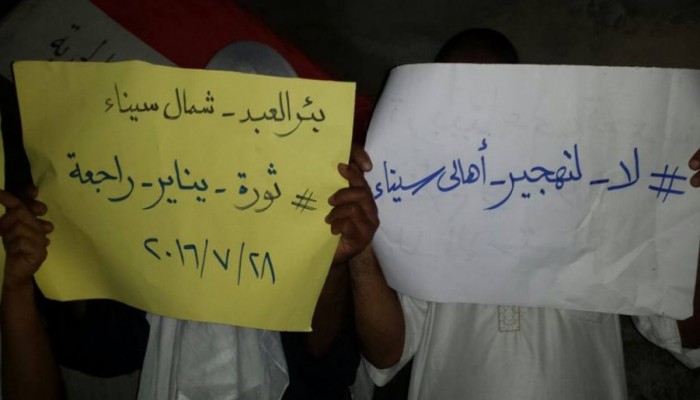 بئر العبد - شمال سيناء
# ثورة - يناير - راجعة
٢٠١٦/٧/٢٨
# لا - لتهجير - أهالى سيناء